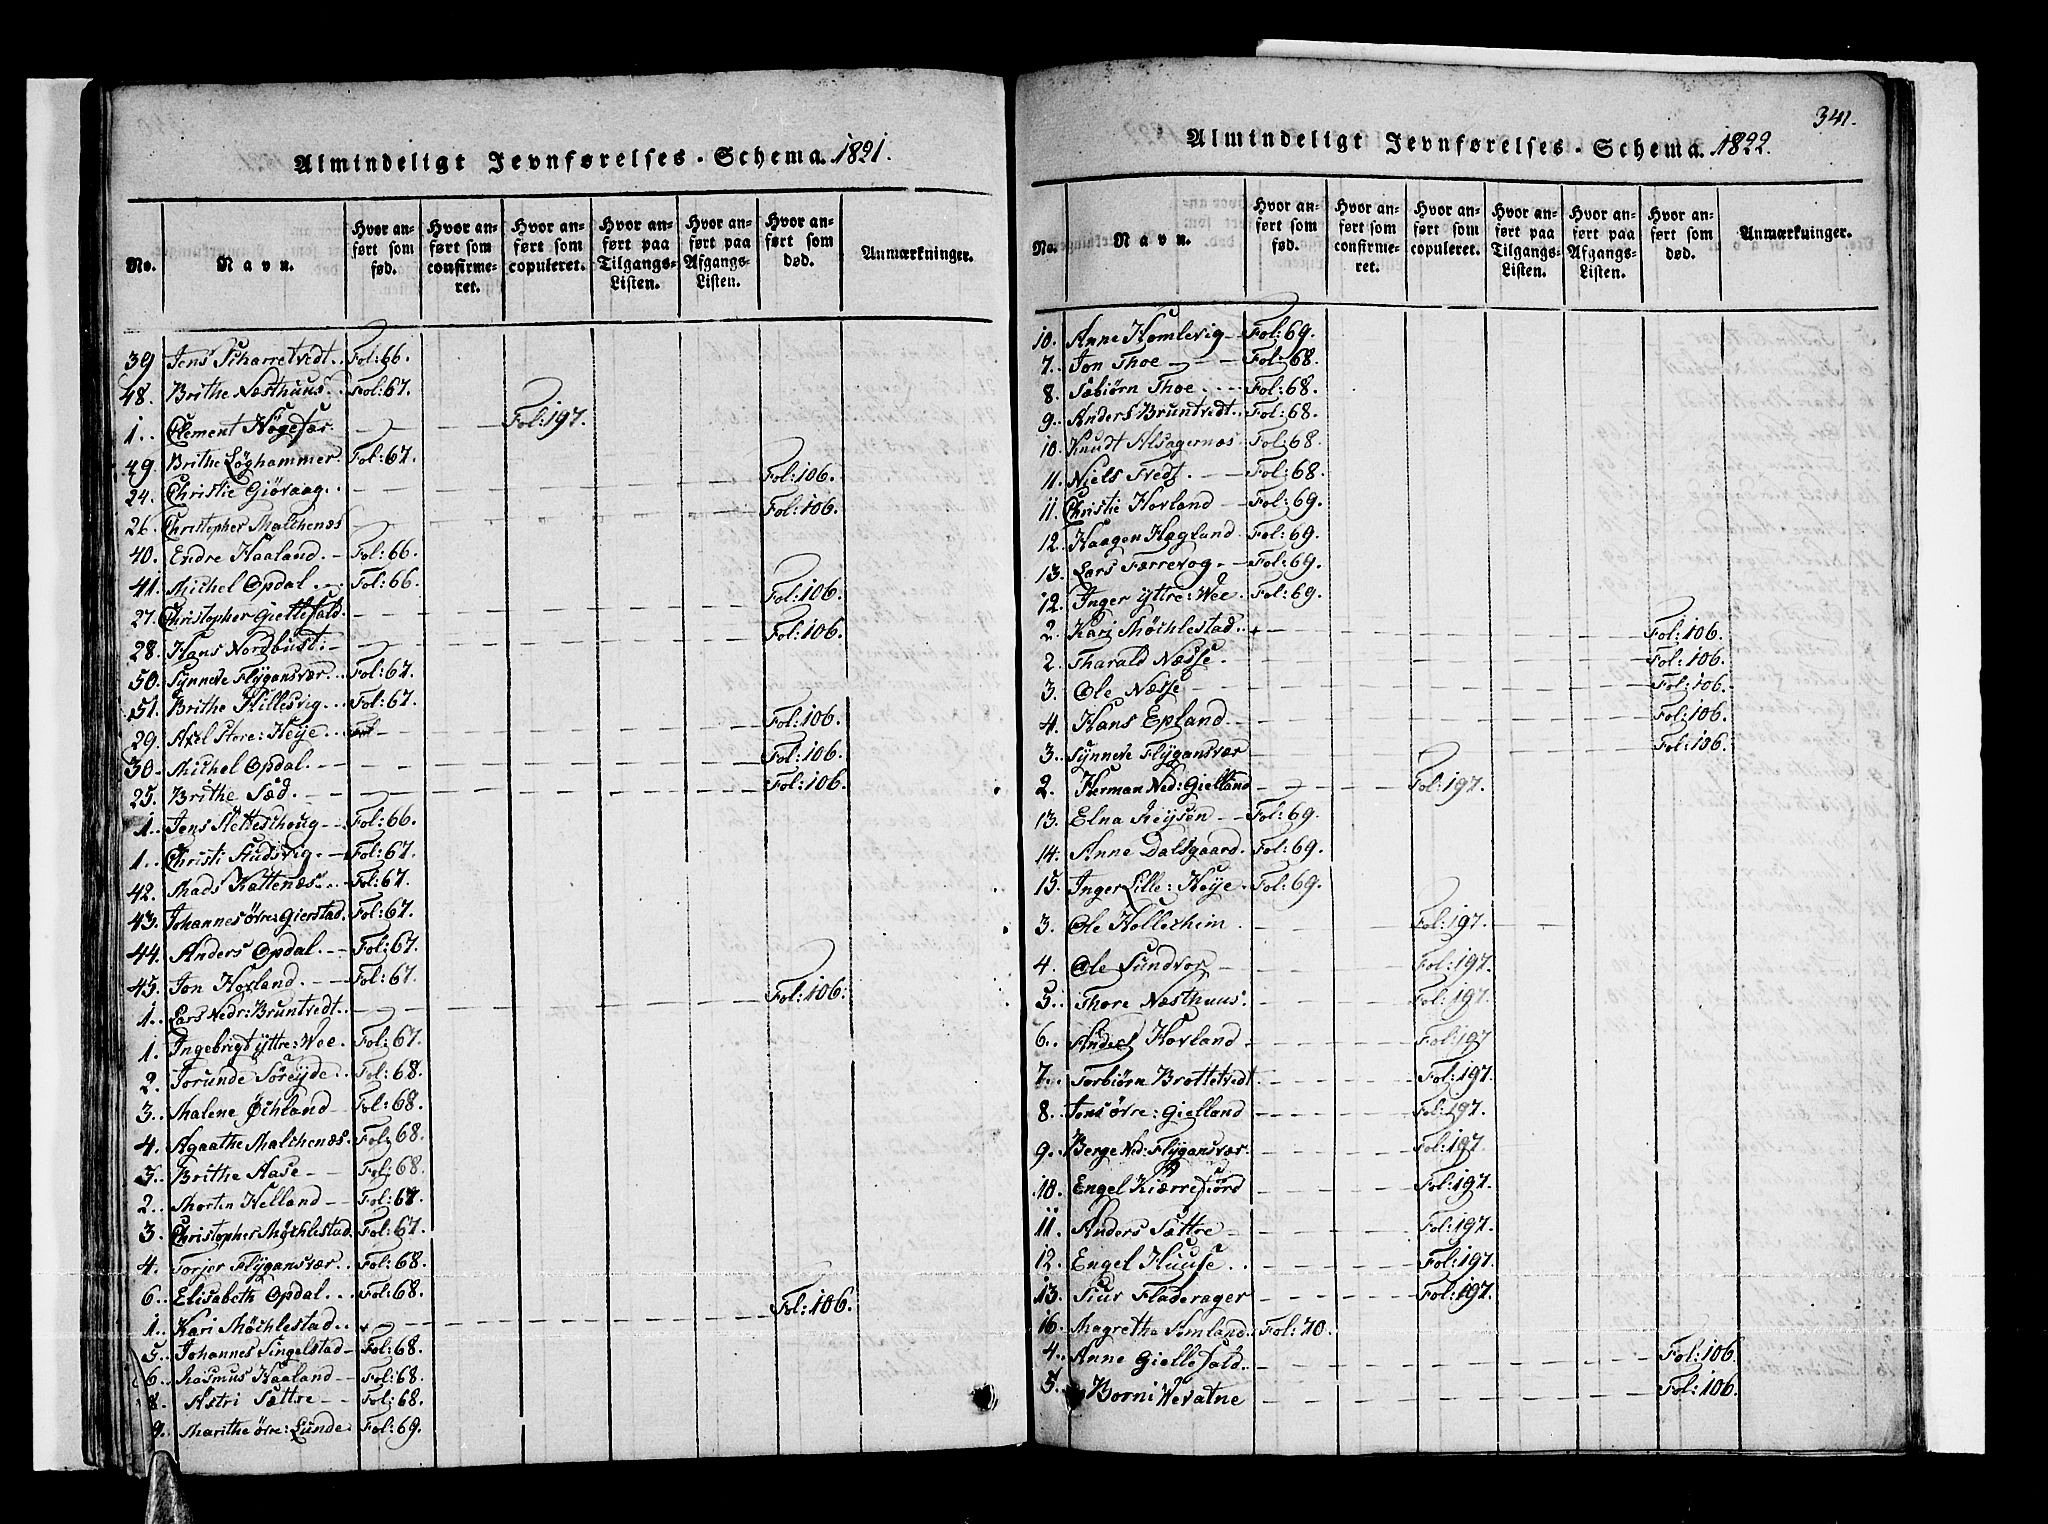 Almindeligt Jevnførelses-Schema. 1821.
No. Navn. Hvor anført som fød. Hvor anført som confirmeret. Hvor anført som copuleret. Hvor anført paa Tilgangs-Listen. Hvor anført paa Afgangs-Listen. Hvor anført som død. Anmærkninger.
39 Jens Scharretvedt.. Fol: 66.
48. Brithe Næsthuus.. Fol: 67.
1.. Clement Høgefæs Fol: 197.
49. Brithe Løghammer. Fol: 67.
24. Christie Giøvaag.. Fol: 106.
26. Christopher Malchenæs Fol: 106.
40. Endre Haaland. Fol: 66.
41. Michel Opdal Fol: 66.
27. Christopher Giellefald. Fol: 106.
28. Hans Nordbust. Fol: 106.
50. Synneve Flygansvær. Fol: 67.
51. Brithe Hillesvig. Fol: 67.
29. Axel Store: Heye Fol: 106.
30. Michel Opdal. Fol: 106.
25. Brithe Sæd. Fol: 106.
1.. Jens Sletteschoug Fol: 66.
1.. Christi Studsvig. Fol: 67.
42. Mads Kattenæs. Fol: 67.
43. Johannes øvre: Gierstad. Fol: 67.
44. Anders Opdal. Fol: 67.
45. Jon Hovland. Fol: 67.
1.. Lars Nedr: Bruntvedt.. Fol: 106.
1. Ingebrigt yttre: Wee. Fol: 67.
2. Jorunde Søreyde.. Fol: 68.
3.. Malene Øchland Fol: 68.
4. Agaathe Malchenæs. Fol: 68.
5.. Brithe Aase Fol: 68.
2.. Morten Helland Fol: 67.
3. Christopher Møchlestad. Fol: 67.
4. Torjer Flygansvær.. Fol: 68.
6.. Elisabeth Opdal.. Fol: 68.
1.. Kari Møchlestad.. Fol: 106.
5.. Johannes Singelstad Fol: 68.
6.. Rasmus Haaland Fol: 68.
8. Astri Sættre Fol: 68.
9. Marithe øvre: Lunde. Fol: 69.
341.
Almindeligt Jevnførelses-Schema. 1822.
No. Navn. Hvor anført som fød. Hvor anført som confirmeret. Hvor anført som copuleret. Hvor anført paa Tilgangs-Listen. Hvor anført paa Afgangs-Listen. Hvor anført som død. Anmærkninger.
10. Anne Homlevig Fol: 69.
7.. Jon Thoe Fol: 68.
8. Sæbiørn Thoe Fol: 68.
9.. Anders Bruntvedt.. Fol: 68.
10. Knudt Alsagernæs Fol: 68.
11. Niels Tvedt. Fol: 68.
11. Christie Hovland Fol: 69.
12. Haagen Hagland. Fol: 69.
13. Lars Færrevog Fol: 69.
12. Inger yttre: Wee. Fol: 69.
2. Kari Møchlestad.. Fol: 106.
2. Tharald Næsse. Fol: 106.
3. Ole Næsse Fol: 106.
4. Hans Epland Fol: 106.
3. Synneve Flygansvær Fol: 106.
2. Herman Ned: Gielland Fol: 197.
13. Elna Reysen Fol: 69.
14. Anne Dalsgaard. Fol: 69.
15. Inger Lille: Heye. Fol: 69.
3. Ole Holleheim. Fol: 197.
4. Ole Sundvor Fol: 197.
5.. Thore Næsthuus. Fol: 197.
6.. Anders Hovland Fol: 197
7.. Torbiørn Brottetvedt. Fol: 197.
8.. Jens øvre: Gielland Fol: 197.
9.. Berge Ned: Flygansvær. Fol: 197.
10. Engel Kiærrefiord Fol: 197.
11. Anders Sættre Fol: 197.
12. Engel Huuse.. Fol: 197.
13. Siur Fladerager Fol: 197.
16. Magretha Somland. Fol: 70.
4.. Anne Giellefald.. Fol: 106.
5.. Borni Wevatne Fol: 106.